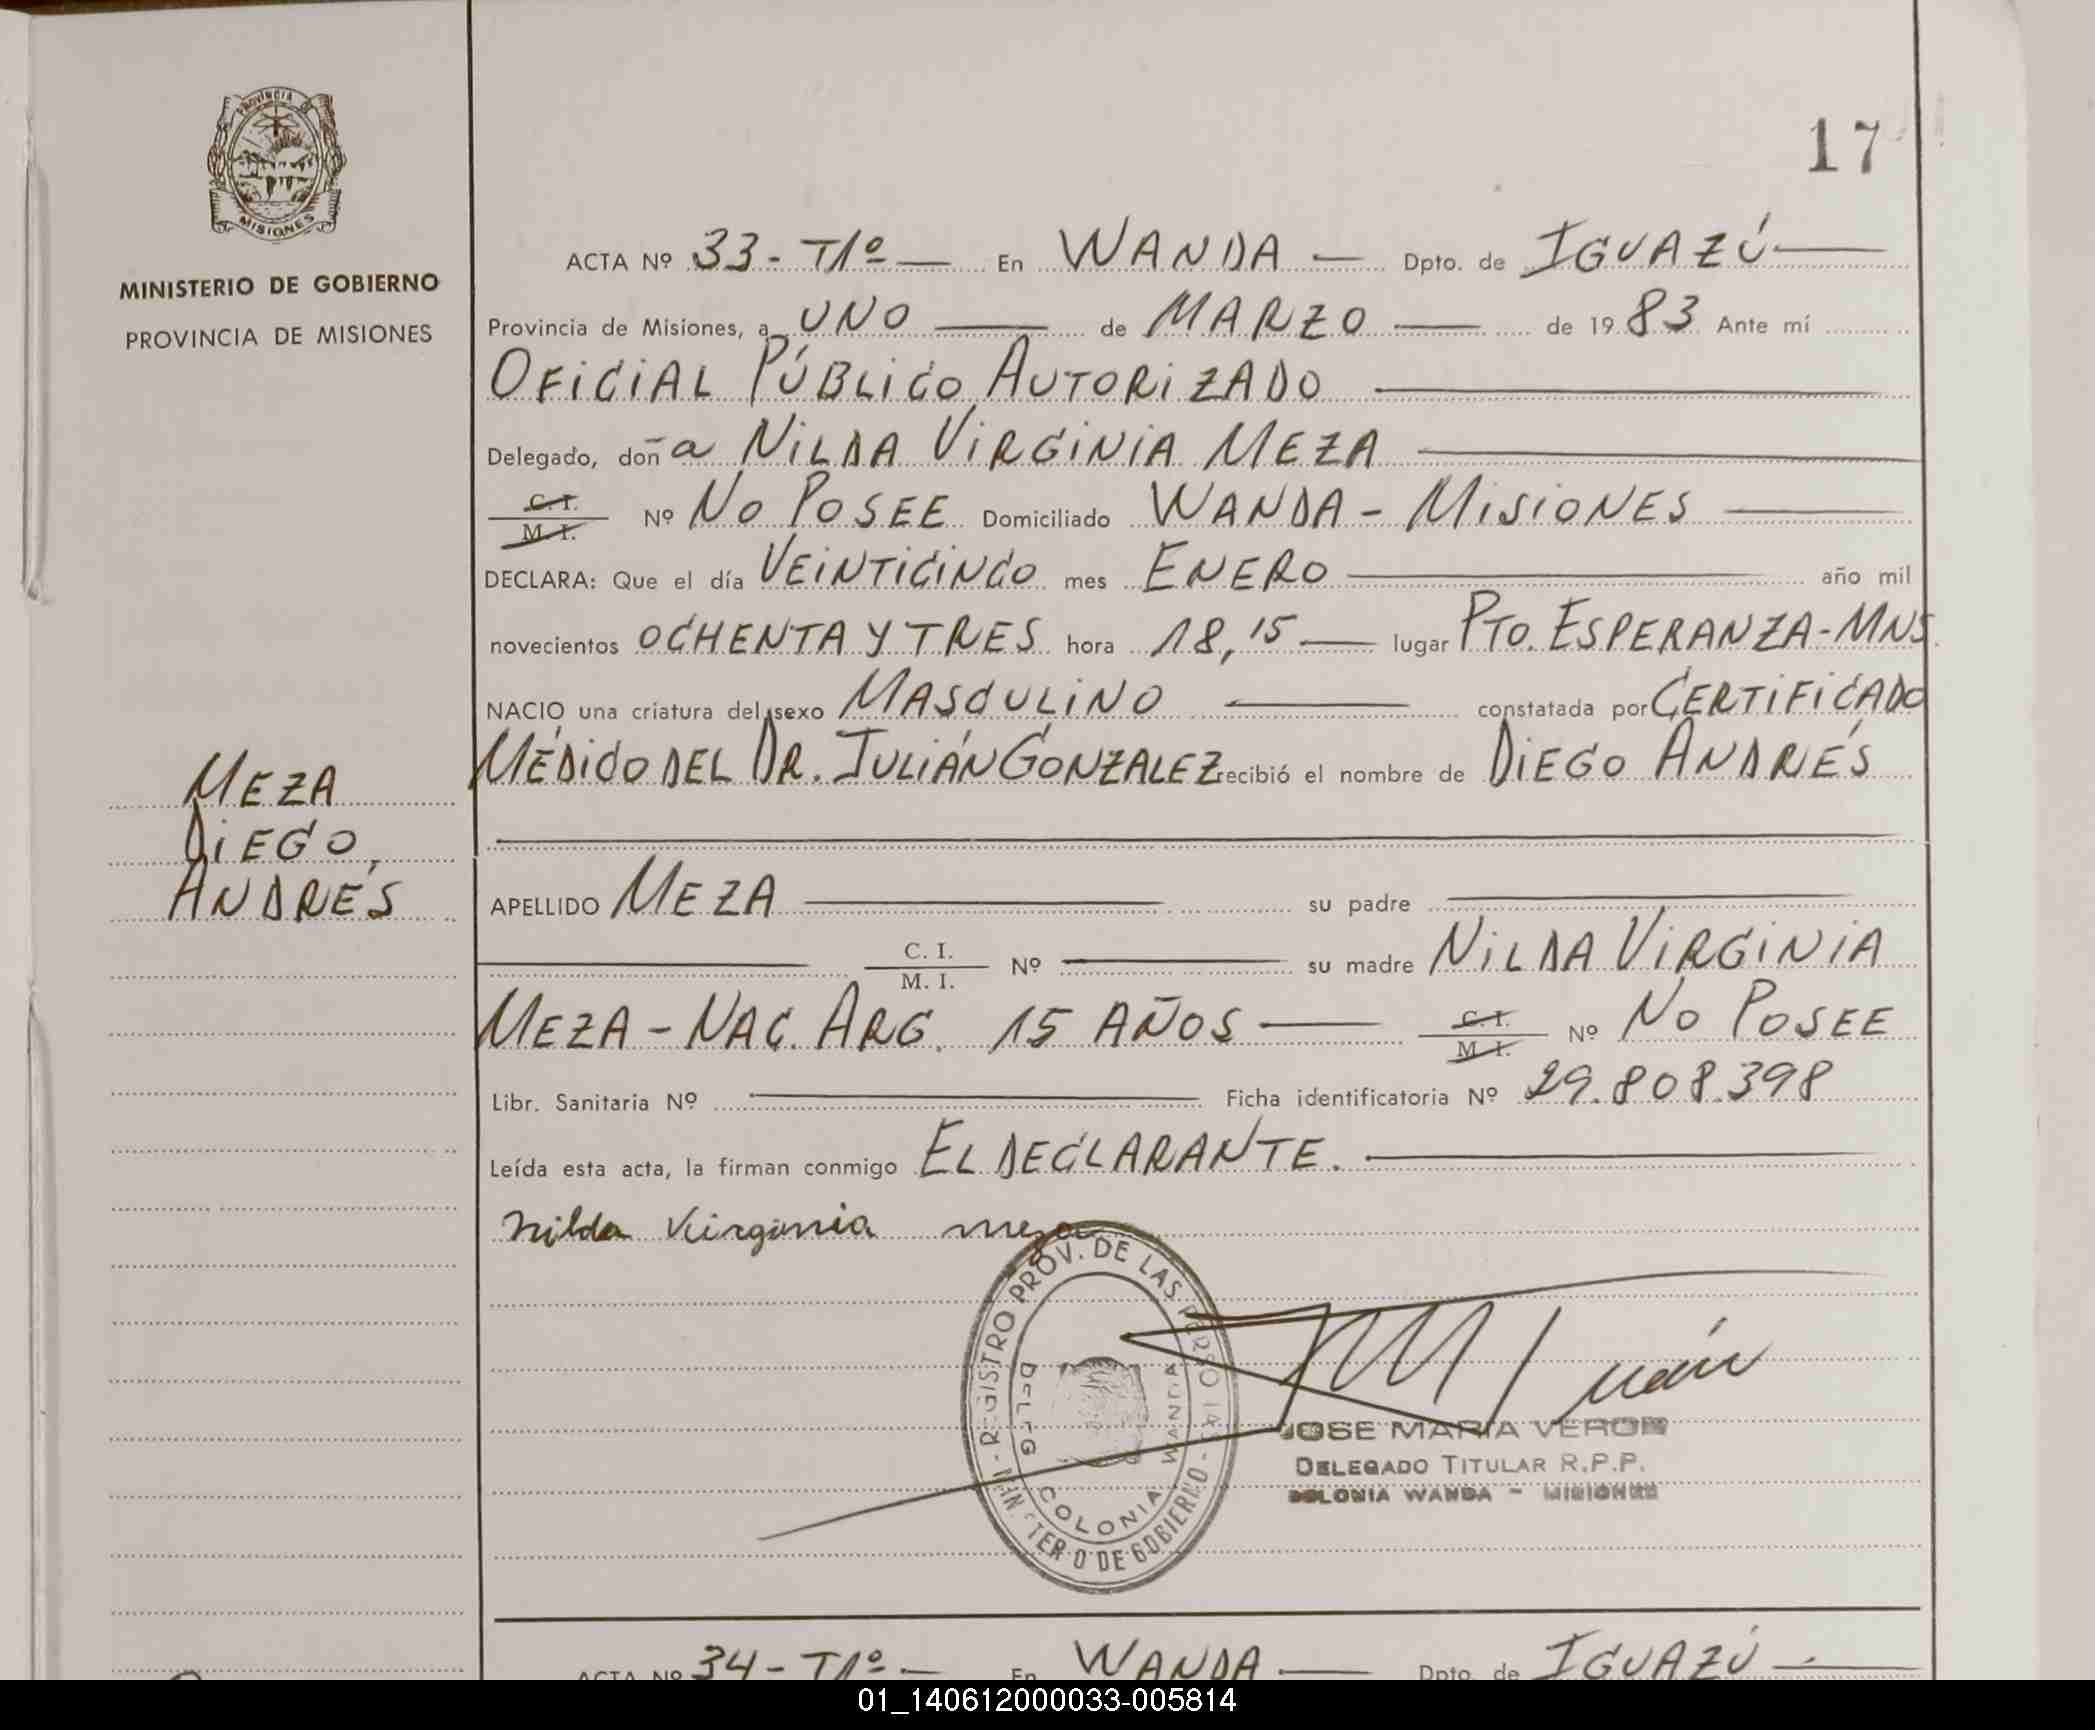 17
PROVINCIA DE
MISIONES
MINISTERIO DE GOBIERNO
PROVINCIA DE MISIONES
MEZA
DIEGO,
ANDRÉS
ACTA Nº 33 - T1º — En WANDA — Dpto. de IGUAZÚ
Provincia de Misiones, a UNO — de MARZO — de 1983 Ante mí
OFICIAL PÚBLICO AUTORIZADO
Delegado, doña NILDA VIRGINIA MEZA
C. I. / M. I. Nº NO POSEE Domiciliado WANDA - MISIONES
DECLARA: Que el día VEINTICINCO mes ENERO año mil
novecientos OCHENTA Y TRES hora 18,15 — lugar PTO. ESPERANZA - MNS.
NACIO una criatura del sexo MASCULINO constatada por CERTIFICADO
MÉDICO DEL DR. JULIÁN GONZALEZ recibió el nombre de DIEGO ANDRÉS
APELLIDO MEZA su padre
C. I. / M. I. Nº su madre NILDA VIRGINIA
MEZA - NAC. ARG. 15 AÑOS — C. I. / M. I. Nº NO POSEE
Libr. Sanitaria Nº Ficha identificatoria Nº 29.808.398
Leída esta acta, la firman conmigo EL DECLARANTE.
Nilda Virginia meza
REGISTRO PROV. DE LAS PERSONAS - MINISTERIO DE GOBIERNO -
DELEG. COLONIA WANDA
JOSE MARIA VERON
DELEGADO TITULAR R.P.P.
COLONIA WANDA - MISIONES
ACTA Nº 34 - T1º — En WANDA — Dpto. de IGUAZÚ —
01_140612000033-005814